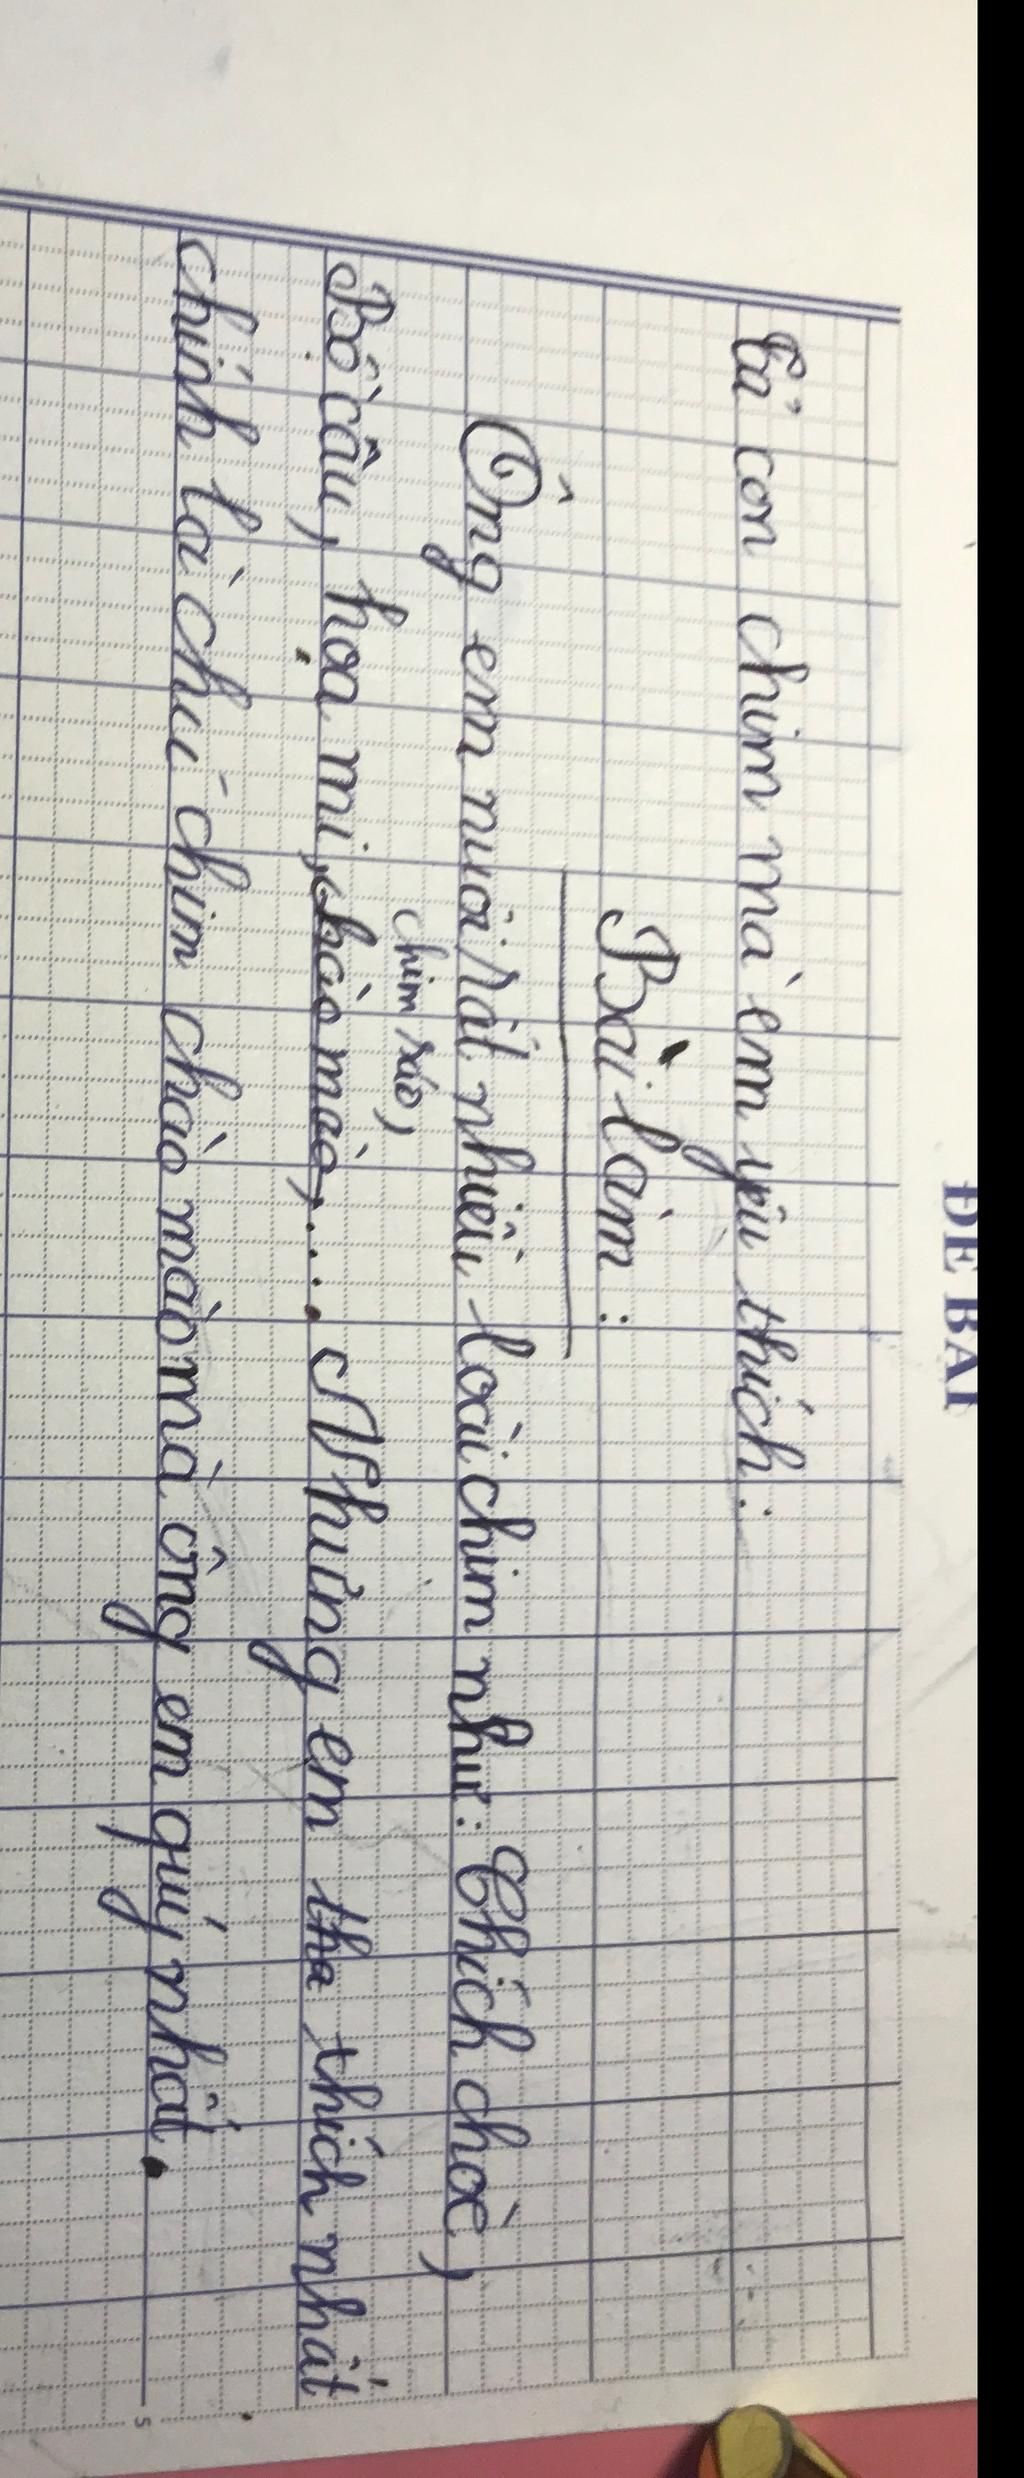 ĐỀ BÀI
Tả con chim mà em yêu thích.
Bài làm:
Ông em nuôi rất nhiều loài chim như: Chích choè,
chim sáo,
Bồ câu, họa mi, chào mào,.... Nhưng em thích nhất
chính là chú chim chào mào mà ông em quý nhất.
5